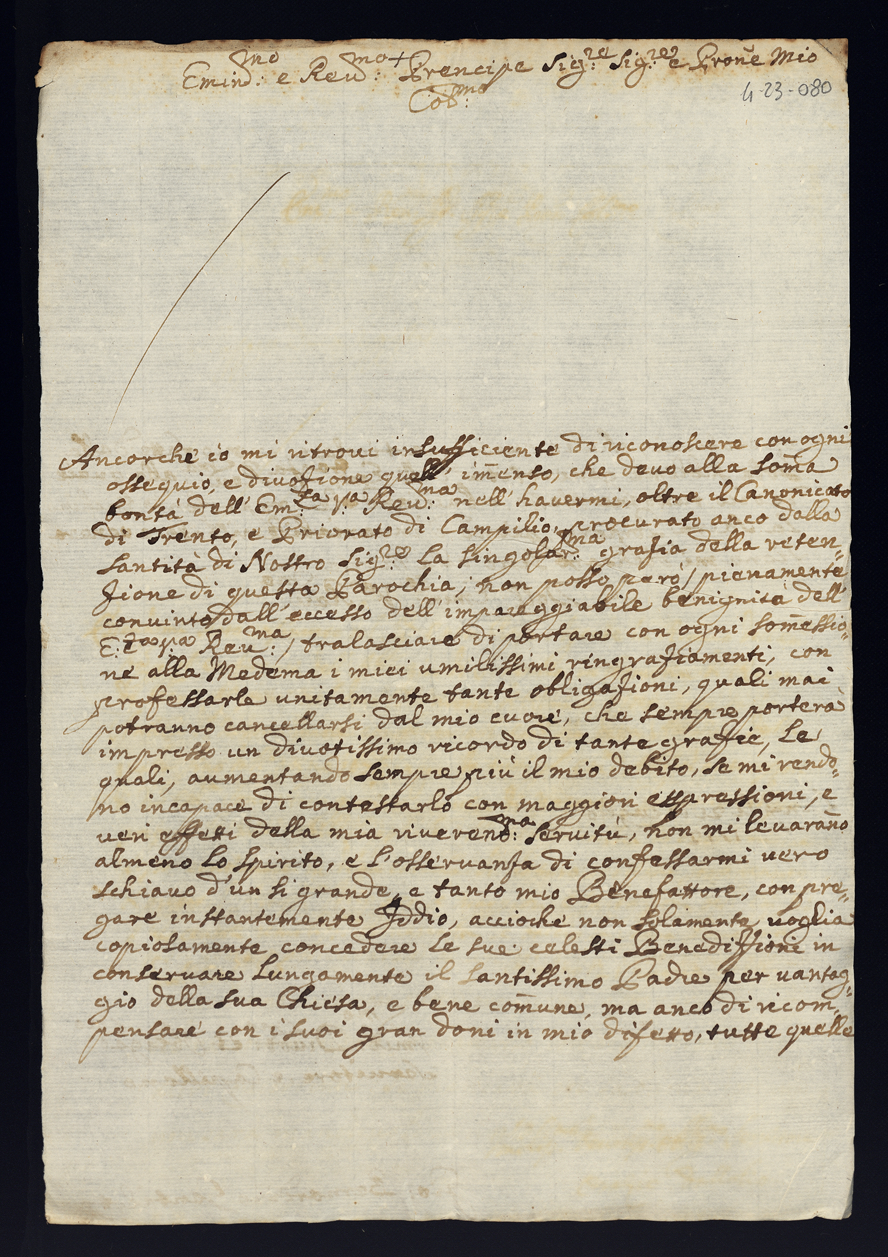 Emin:mo e Reu:mo + Prencipe Sig:re Sig:re e Prone Mio
Cob:mo
4-23-080
Ancorche io mi ritroui insufficiente di riconoscere con ogni
ossequio, e diuozione quell' imenso, che deuo alla Soma
bontà dell' Em:za V:ra Reu:ma nell' hauermi, oltre il Canonicato
di Trento, e Priorato di Campilio, procurato anco dalla
Santità di Nostro Sig:re la singolar:ma grazia della reten=
zione di questa Parochia; non posso però / pienamente
conuinto dall' eccesso dell' impareggiabile benignità dell'
E:za V:ra Reu:ma / tralasciare di portare con ogni somessio=
ne alla Medema i miei umilissimi ringraziamenti, con
professarle unitamente tante obligazioni, quali mai
potranno cancellarsi dal mio cuore, che sempre porterà
impresso un diuotissimo ricordo di tante grazie, Le
quali, aumentando sempre più il mio debito, se mi rendo=
no incapace di contestarlo con maggiori espressioni, e
veri effetti della mia riueren:ma Seruitù, non mi leuarano
almeno lo spirito, e l'osseruanza di confessarmi vero
schiauo d'un si grande, e tanto mio Benefattore, con pre=
gare instantemente Iddio, accioche non solamente voglia
copiosamente concedere le sue celesti Benedizzioni in
conseruare lungamente il santissimo Padre per vantag=
gio della sua Chiesa, e bene comune, ma anco di ricom=
pensare con i suoi gran doni in mio difetto, tutte quelle